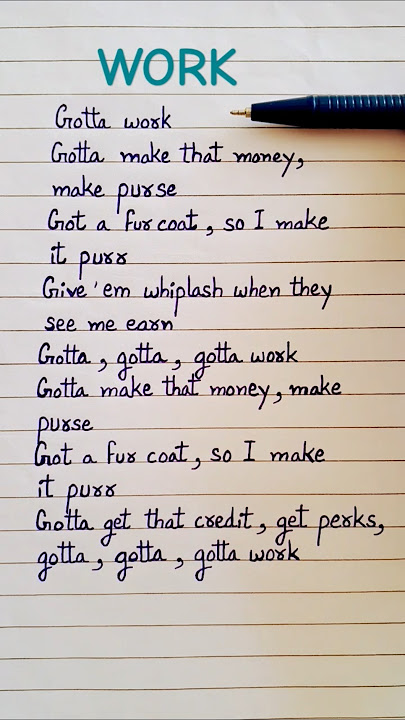 WORK
Gotta work
Gotta make that money,
make purse
Got a fur coat, so I make
it purr
Give 'em whiplash when they
see me earn
Gotta, gotta, gotta work
Gotta make that money, make
purse
Got a fur coat, so I make
it purr
Gotta get that credit, get perks,
gotta, gotta, gotta work